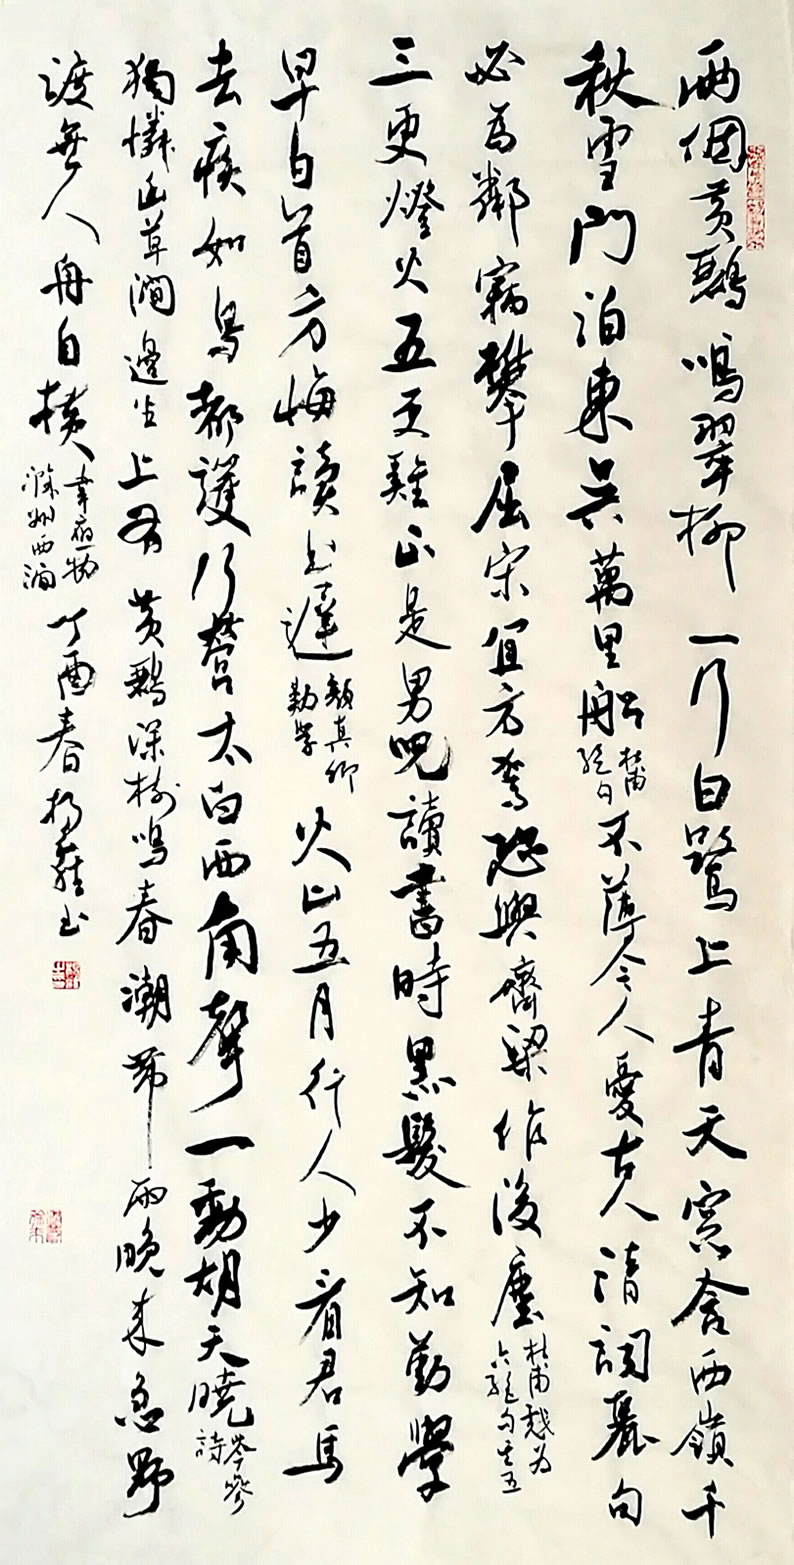 兩個黃鸝鳴翠柳一行白鷺上青天窓含西嶺千
秋雪門泊東吳萬里船 杜甫絕句 不薄今人愛古人清詞麗句
必為鄰竊攀屈宋宜方駕恐與齊梁作後塵 杜甫戲為六絕句其五
三更燈火五更雞正是男兒讀書時黑髮不知勤學
早白首方悔讀書遲 顏真卿勸學 火山五月行人少看君馬
去疾如鳥都護行營太白西角聲一動胡天曉 岑參詩
獨憐幽草澗邊生上有黃鸝深樹鳴春潮帶雨晚來急野
渡無人舟自橫 韋應物滁州西澗 丁酉春 書